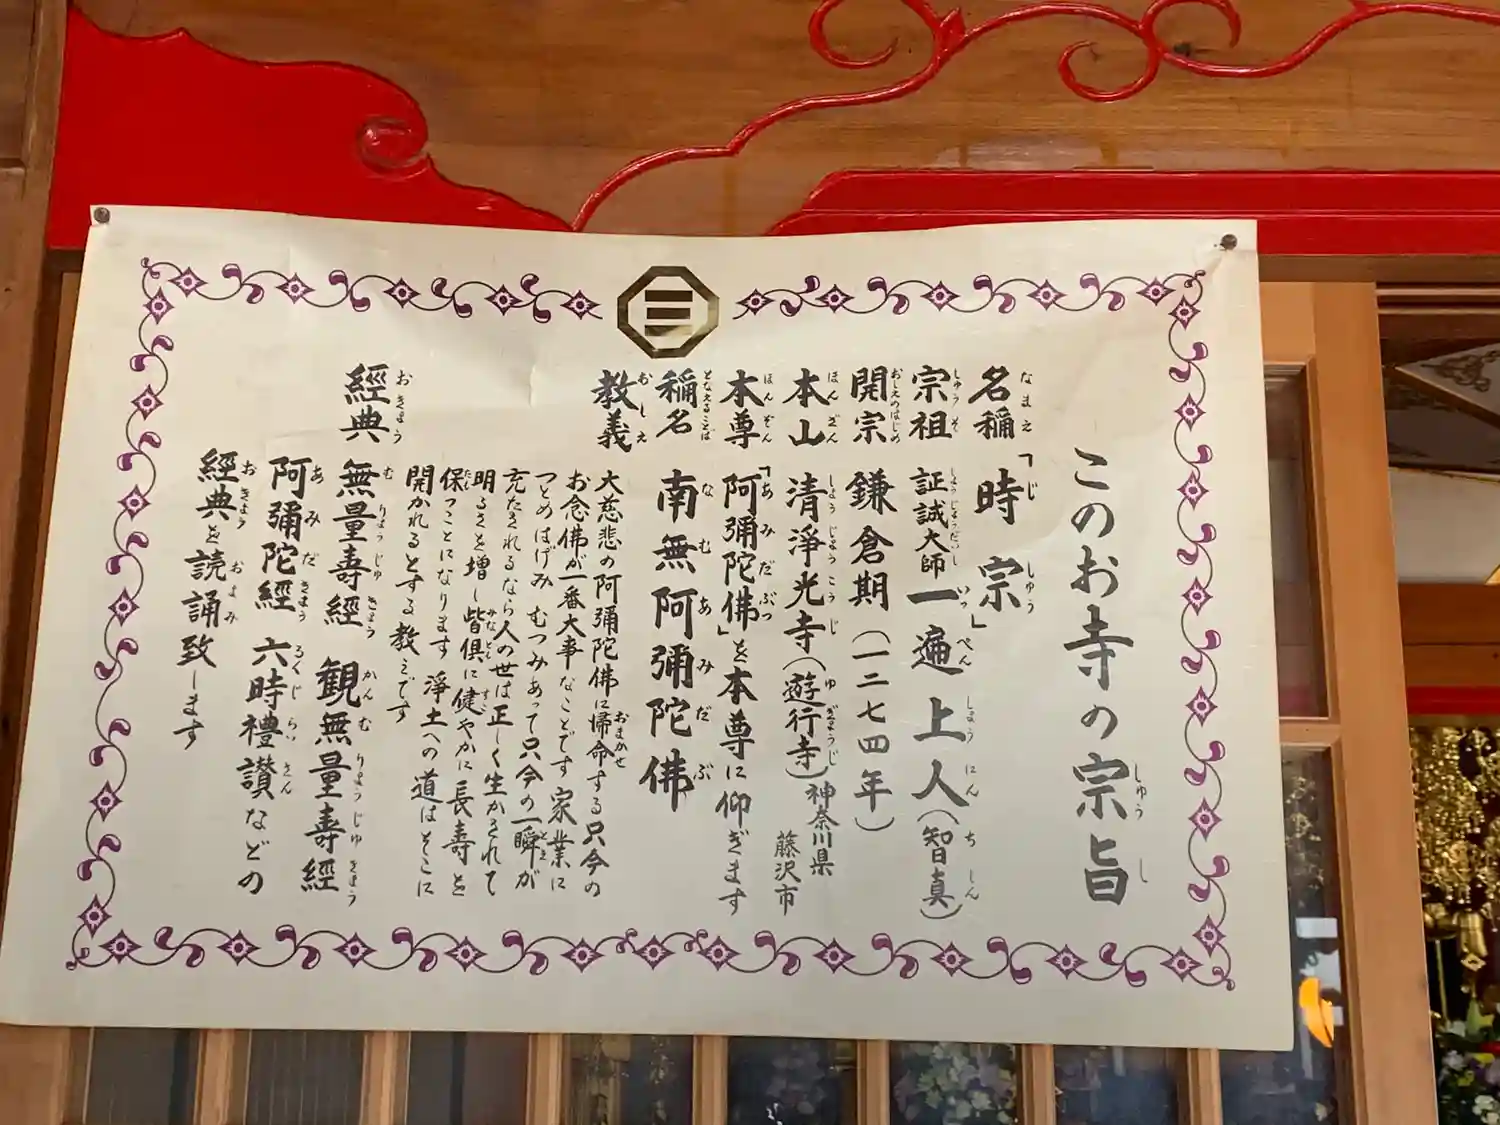 このお寺の宗旨
名稱 「時宗」
宗祖 証誠大師 一遍上人(智真)
開宗 鎌倉期(一二七四年)
本山 清浄光寺(遊行寺)神奈川県藤沢市
本尊 「阿彌陀佛」を本尊に仰ぎます
稱名 南無阿彌陀佛
教義 大慈悲の阿彌陀佛に帰命する只今の
お念佛が一番大事なことです 家業に
つとめはげみ むつみあって只今の一瞬が
充たされるなら人の世は正しく生かされて
明るさを増し皆倶に健やかに長寿を
保つことになります 淨土への道はそこに
開かれるとする教えです
經典 無量壽經 観無量壽經
阿彌陀經 六時禮讃などの
經典を読誦致します